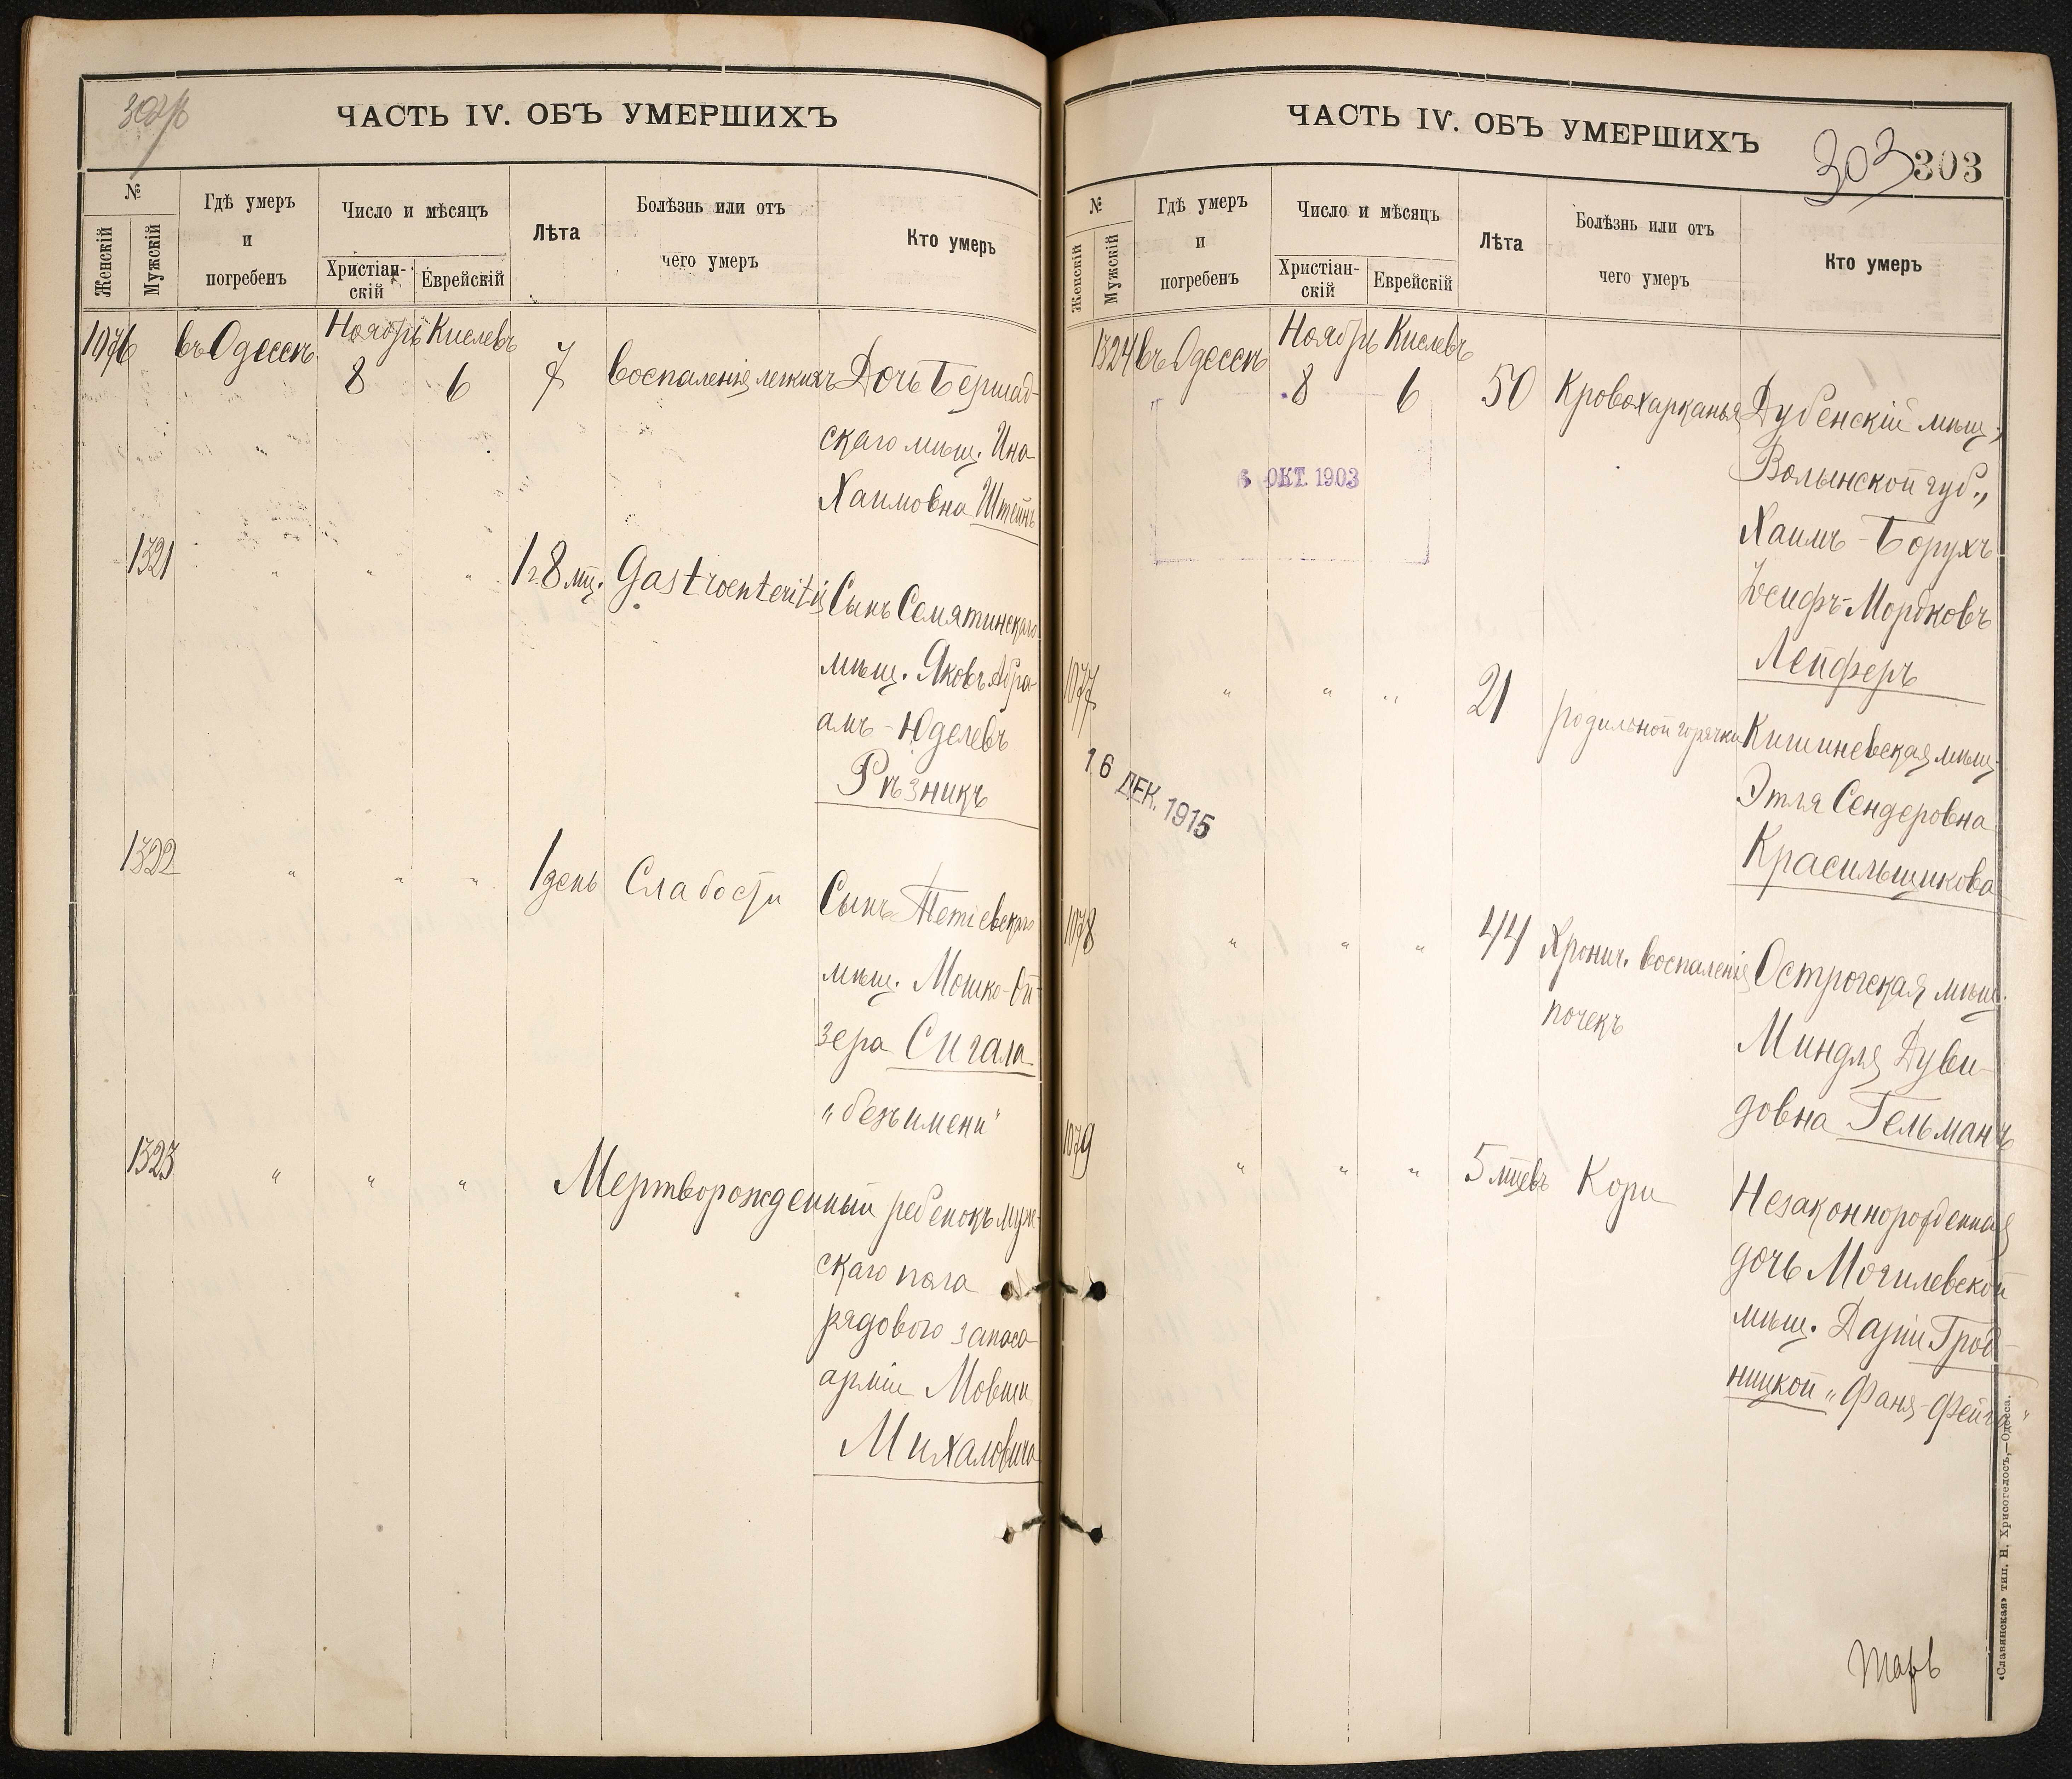 ЧАСТЬ IV. ОБЪ УМЕРШИХЪ
№
Женскій
Мужскій
Гдѣ умеръ
и
погребенъ
Число и мѣсяцъ
Христіан-
скій
Еврейскій
Лѣта
Болѣзнь или отъ
чего умеръ
Кто умеръ
1076 въ Одессѣ Ноябрь 8 Кислевъ 6 7 воспаленія легкихъ Дочь Бершад-
скаго мѣщ. Ина
Хаимовна Штейнъ
1321 " " " 1 г. 8 мц. Gastroenteritis Сынъ Семятинскаго
мѣщ. Яковъ Абра-
амъ-Юделевъ
Рѣзникъ
1322 " " " 1 день Слабости Сынъ Тетіевскаго
мѣщ. Мошко-Ой-
зера Сигала
"безъ имени"
1323 " " " Мертворожденный ребенокъ муж-
скаго пола
рядового запаса
арміи Мовши
Михаловича
ЧАСТЬ IV. ОБЪ УМЕРШИХЪ
303 303
№
Женскій
Мужскій
Гдѣ умеръ
и
погребенъ
Число и мѣсяцъ
Христіан-
скій
Еврейскій
Лѣта
Болѣзнь или отъ
чего умеръ
Кто умеръ
1324 въ Одессѣ Ноябрь 8 Кислевъ 6 50 Кровохарканья Дубенскій мѣщ.,
Волынской губ.,
Хаимъ-Борухъ
Іосифъ-Мордковъ
Лейферъ
6 ОКТ. 1903
1077 " " " 21 родильной горячки Кишиневская мѣщ.
Этля Сендеровна
Красильщикова
16 ДЕК. 1915
1078 " " " 44 Хронич. воспаленія Острогская мѣщ.
почекъ
Миндля Дуви-
довна Гельманъ
1079 " " " 5 мцевъ Кори Незаконнорожденная
дочь Могилевской
мѣщ. Даріи Грод-
ницкой "Фаня-Фейга"
«Славянская» тип. Н. Хрисогелосъ,—Одесса.